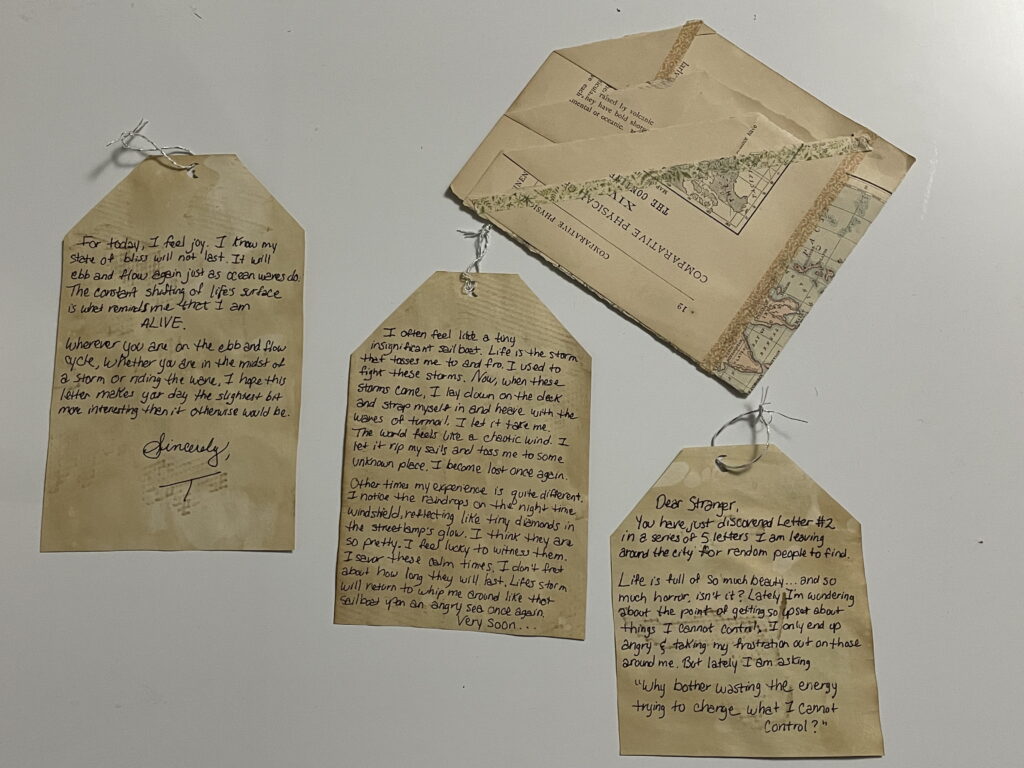 Dear Stranger,
You have just discovered Letter #2
in a series of 5 letters I am leaving
around the city for random people to find.
Life is full of so much beauty... and so
much horror, isn't it? Lately I'm wondering
about the point of getting so upset about
things I cannot control. I only end up
angry & taking my frustration out on those
around me. But lately I am asking
"Why bother wasting the energy
trying to change what I cannot
control?"
I often feel like a tiny
insignificant sailboat. Life is the storm
that tosses me to and fro. I used to
fight these storms. Now, when these
storms come, I lay down on the deck
and strap myself in and heave with the
waves of turmoil. I let it take me.
The world feels like a chaotic wind. I
let it rip my sails and toss me to some
unknown place. I become lost once again.
Other times my experience is quite different.
I notice the raindrops on the night time
windshield, reflecting like tiny diamonds in
the streetlamp's glow. I think they are
so pretty. I feel lucky to witness them.
I savor these calm times, I don't fret
about how long they will last. Life's storm
will return to whip me around like that
sailboat upon an angry sea once again.
Very soon...
For today, I feel joy. I know my
state of bliss will not last. It will
ebb and flow again just as ocean waves do.
The constant shifting of life's surface
is what reminds me that I am
ALIVE.
Wherever you are on the ebb and flow
cycle, whether you are in the midst of
a storm or riding the wave, I hope this
letter makes your day the slightest bit
more interesting then it otherwise would be.
Sincerely,
raised by volcanic
they have bold
mental or oceanic.
COMPARATIVE PHYSICAL
XIV
THE
COMPARATIVE PHYSIC